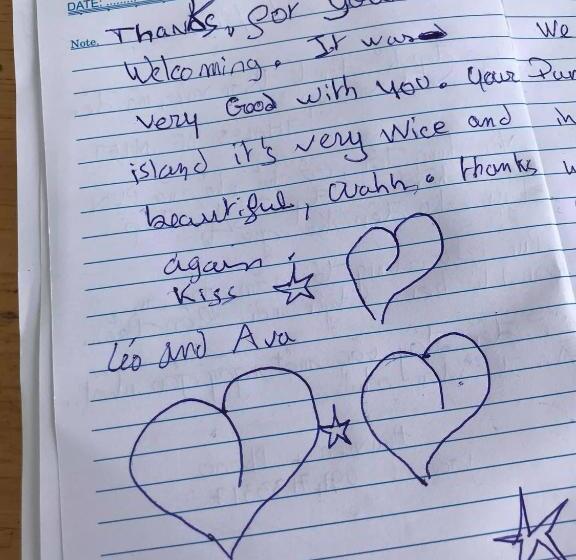 DATE:
Note, Thanks, for you
Welcoming. It was We
very Good with you. Your
island it's very Nice and in
beautiful, Ouahh. thanks
again!
Kiss
Léo and Ava